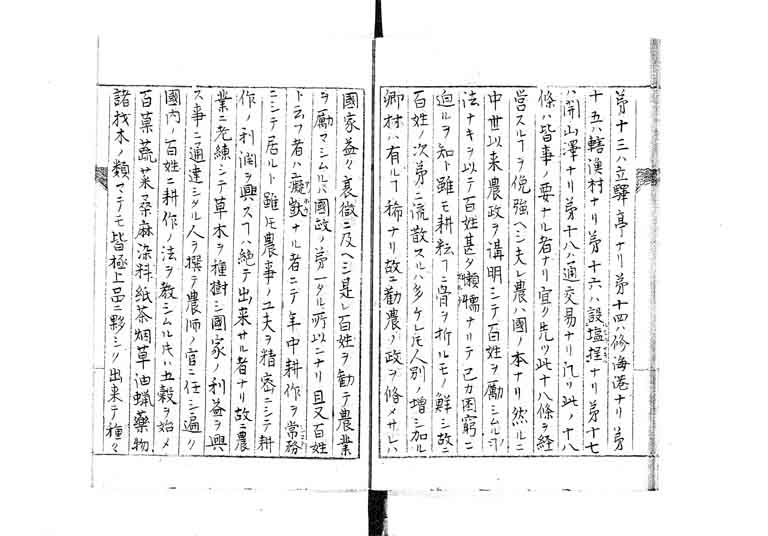 第十三ハ立驛亭ナリ第十四ハ修海港ナリ第
十五ハ轄漁村ナリ第十六ハ設塩捏ナリ第十七
ハ開山澤ナリ第十八ハ通交易ナリ凡リ此ノ十八
條ハ皆事ノ要ナル者ナリ宜ク先ツ此十八條ヲ経
営スルヿヲ俛強ヘシ夫レ農ハ國ノ本ナリ然ルニ
中世以来農政ヲ講明シテ百姓ヲ厲シムル
法ナキヲ以テ百姓甚タ懶惰ナリテ己カ困窮ニ
迫ルヲ知ト雖モ耕耘ニ骨ヲ折ルモノ鮮シ故ニ
百姓ノ次第ニ流散スルハ多ケレ𪜈人別ノ増シ加ル
郷村ハ有ルヿ稀ナリ故ニ勸農ノ政ヲ脩メサレハ
國家益々衰微ニ及ヘシ是レ百姓ヲ勧テ農業
ヲ厲マシムルハ國政ノ第一タル所以ニナリ且又百姓
ト云フ者ハ癡獃ナル者ニテ年中耕作ヲ常務
ニシテ居ルト雖モ農事ノ工夫ヲ精密ニシテ耕
作ノ利潤ヲ興スヿハ絶テ出来サル者ナリ故ニ農
業ニ老練シテ草木ヲ種樹シ國家ノ利益ヲ興
ス事ニ通達シタル人ヲ撰テ農師ノ官ニ任シ遍ク
國内ノ百姓ニ耕作ノ法ヲ教シムル𪜈五穀ヲ始メ
百菓蔬菜桑麻染料紙茶烟草油蝋藥物
諸材木ノ類マテモ皆極上品ニ夥シク出来テ種々